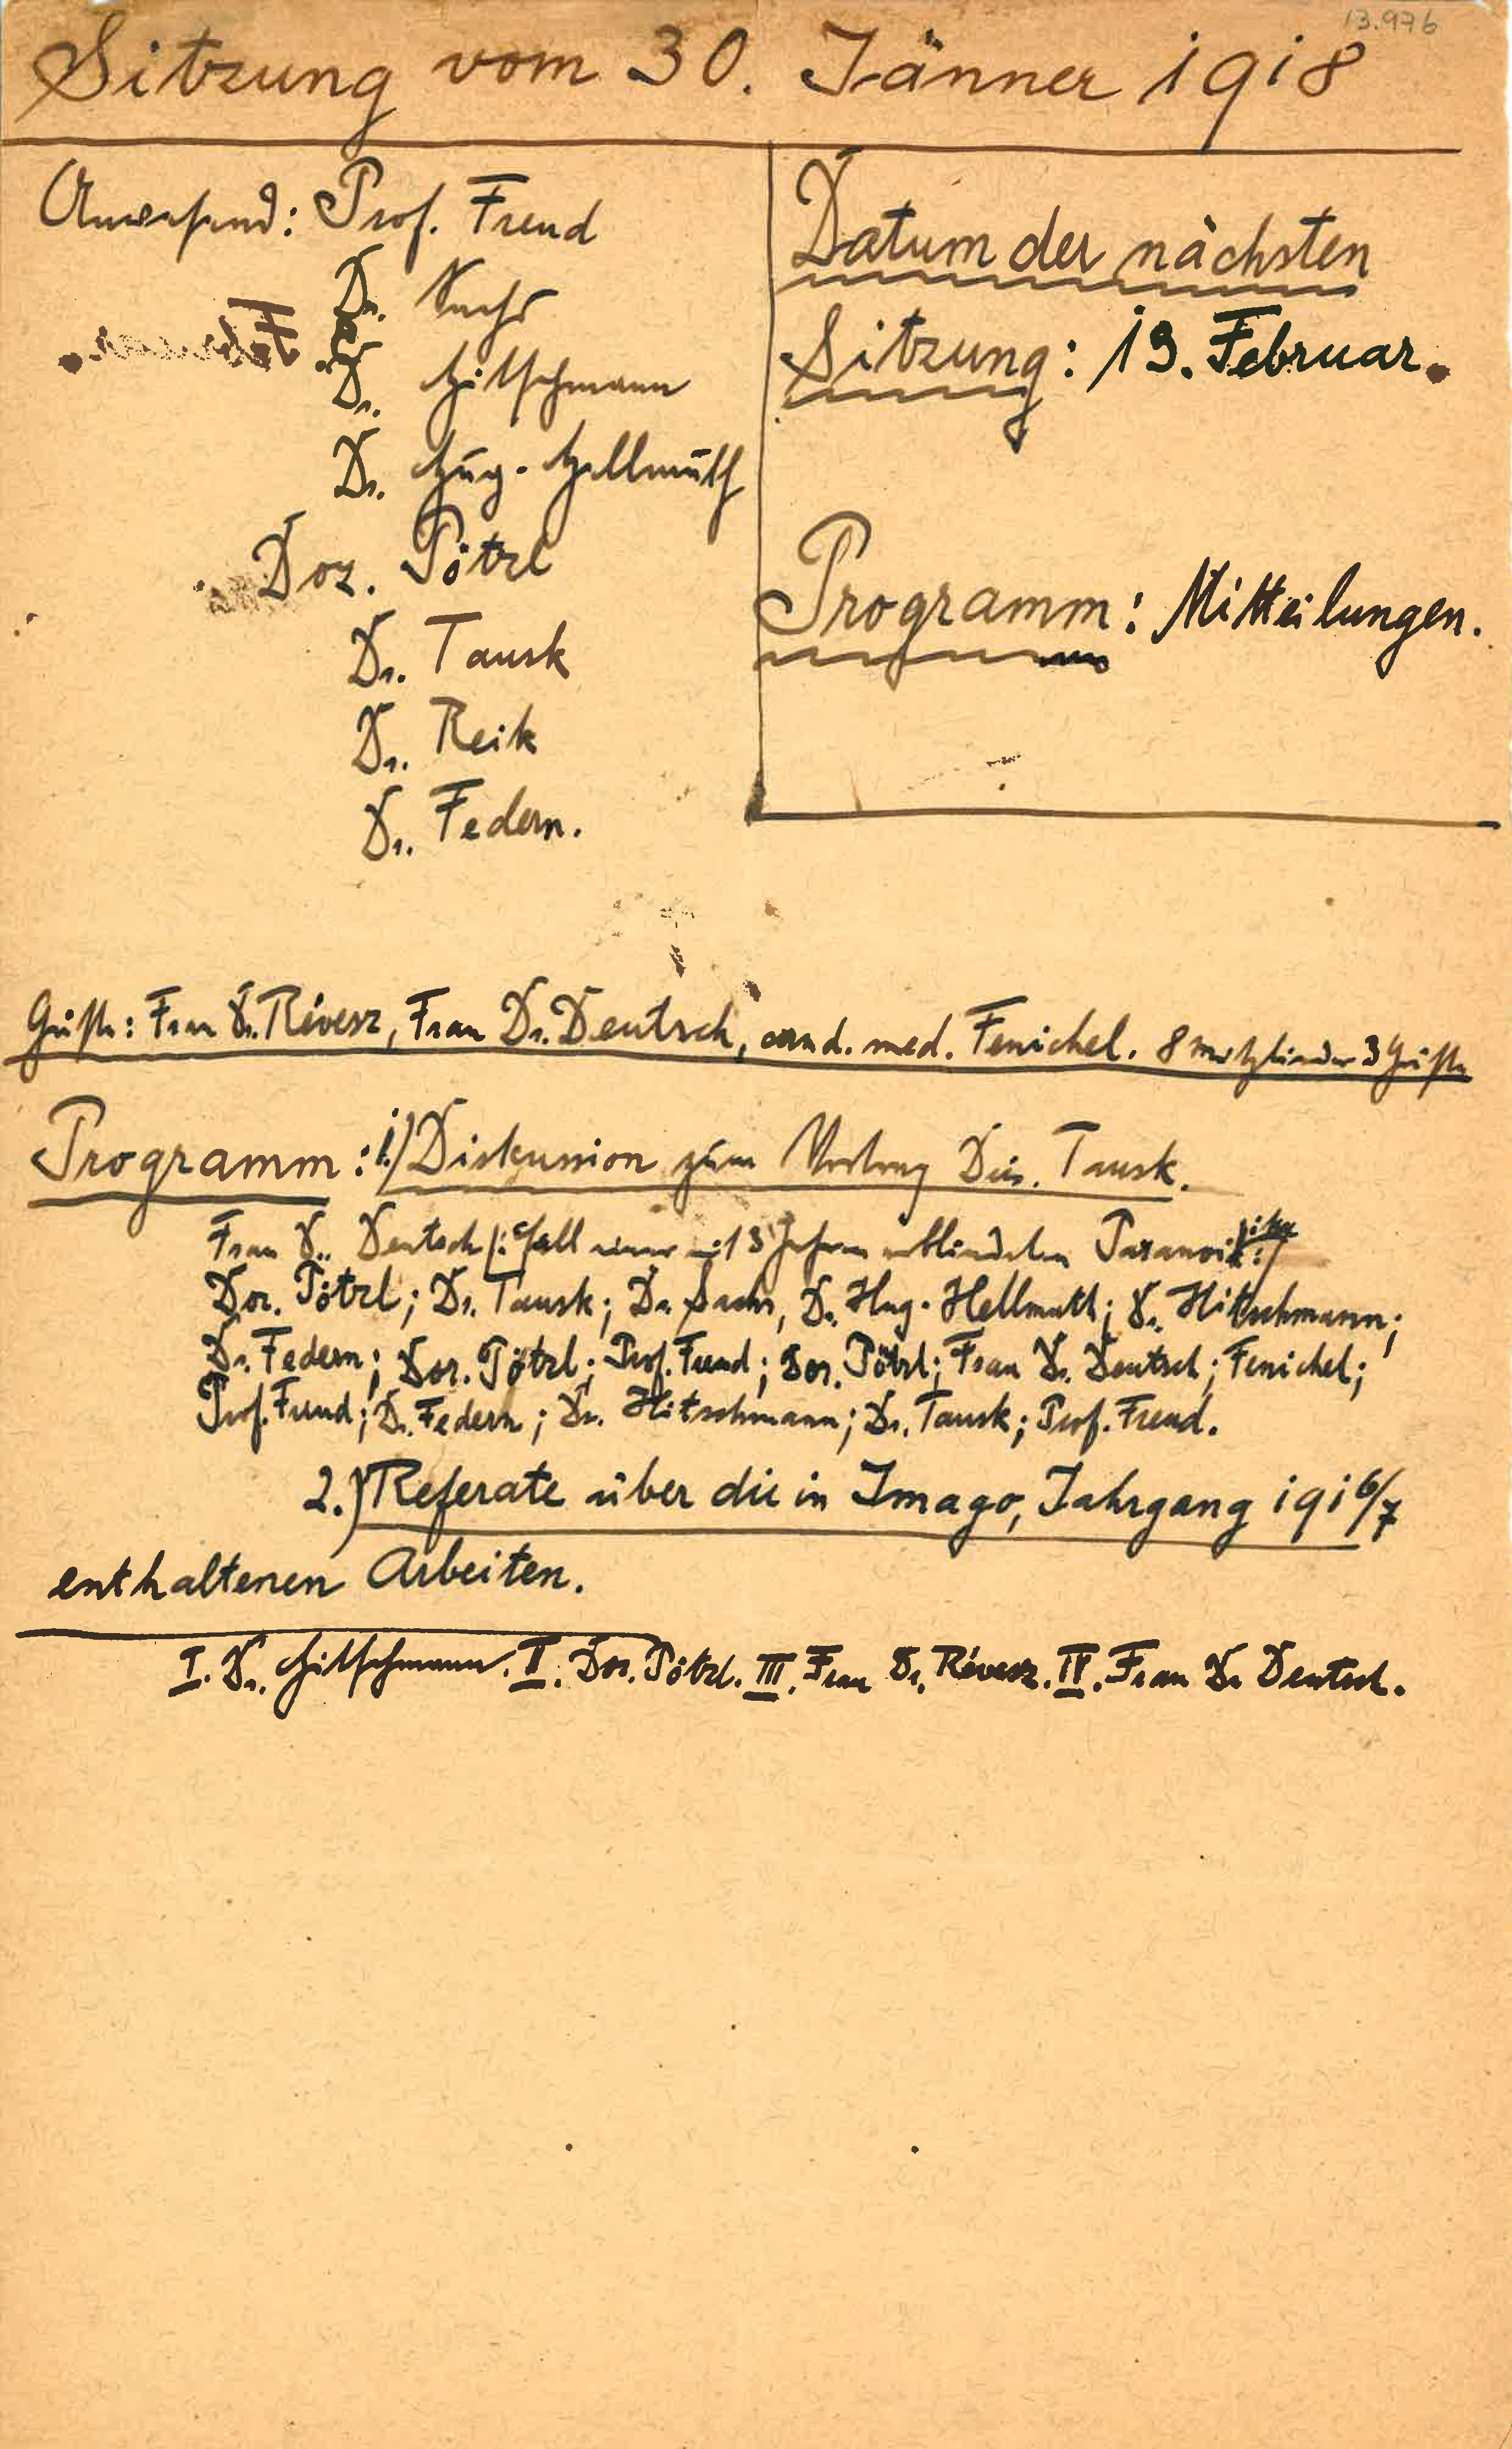 13.976
Sitzung vom 30. Jänner 1918
Anwesend: Prof. Freud
Dr. Sachs
Dr. Hitschmann
Dr. Hug-Hellmuth
Doz. Pötzl
Dr. Tausk
Dr. Reik
Dr. Federn.
Datum der nächsten
Sitzung: 13. Februar.
Programm: Mitteilungen.
Gäste: Frau Dr. Révesz, Frau Dr. Deutsch, cand. med. Fenichel. 8 Mitglieder 3 Gäste
Programm: 1.) Diskussion zum Vortrag Drs. Tausk.
Frau Dr. Deutsch /: Fall einer mit 13 Jahren erblindeten Paranoika :/
Doz. Pötzl; Dr. Tausk; Dr. Sachs, Dr. Hug-Hellmuth; Dr. Hitschmann;
Dr. Federn; Doz. Pötzl; Prof. Freud; Doz. Pötzl; Frau Dr. Deutsch; Fenichel;
Prof. Freud; Dr. Federn; Dr. Hitschmann; Dr. Tausk; Prof. Freud.
2.) Referate über die in Imago, Jahrgang 1916/7
enthaltenen Arbeiten.
I. Dr. Hitschmann. II. Doz. Pötzl. III. Frau Dr. Révesz. IV. Frau Dr. Deutsch.